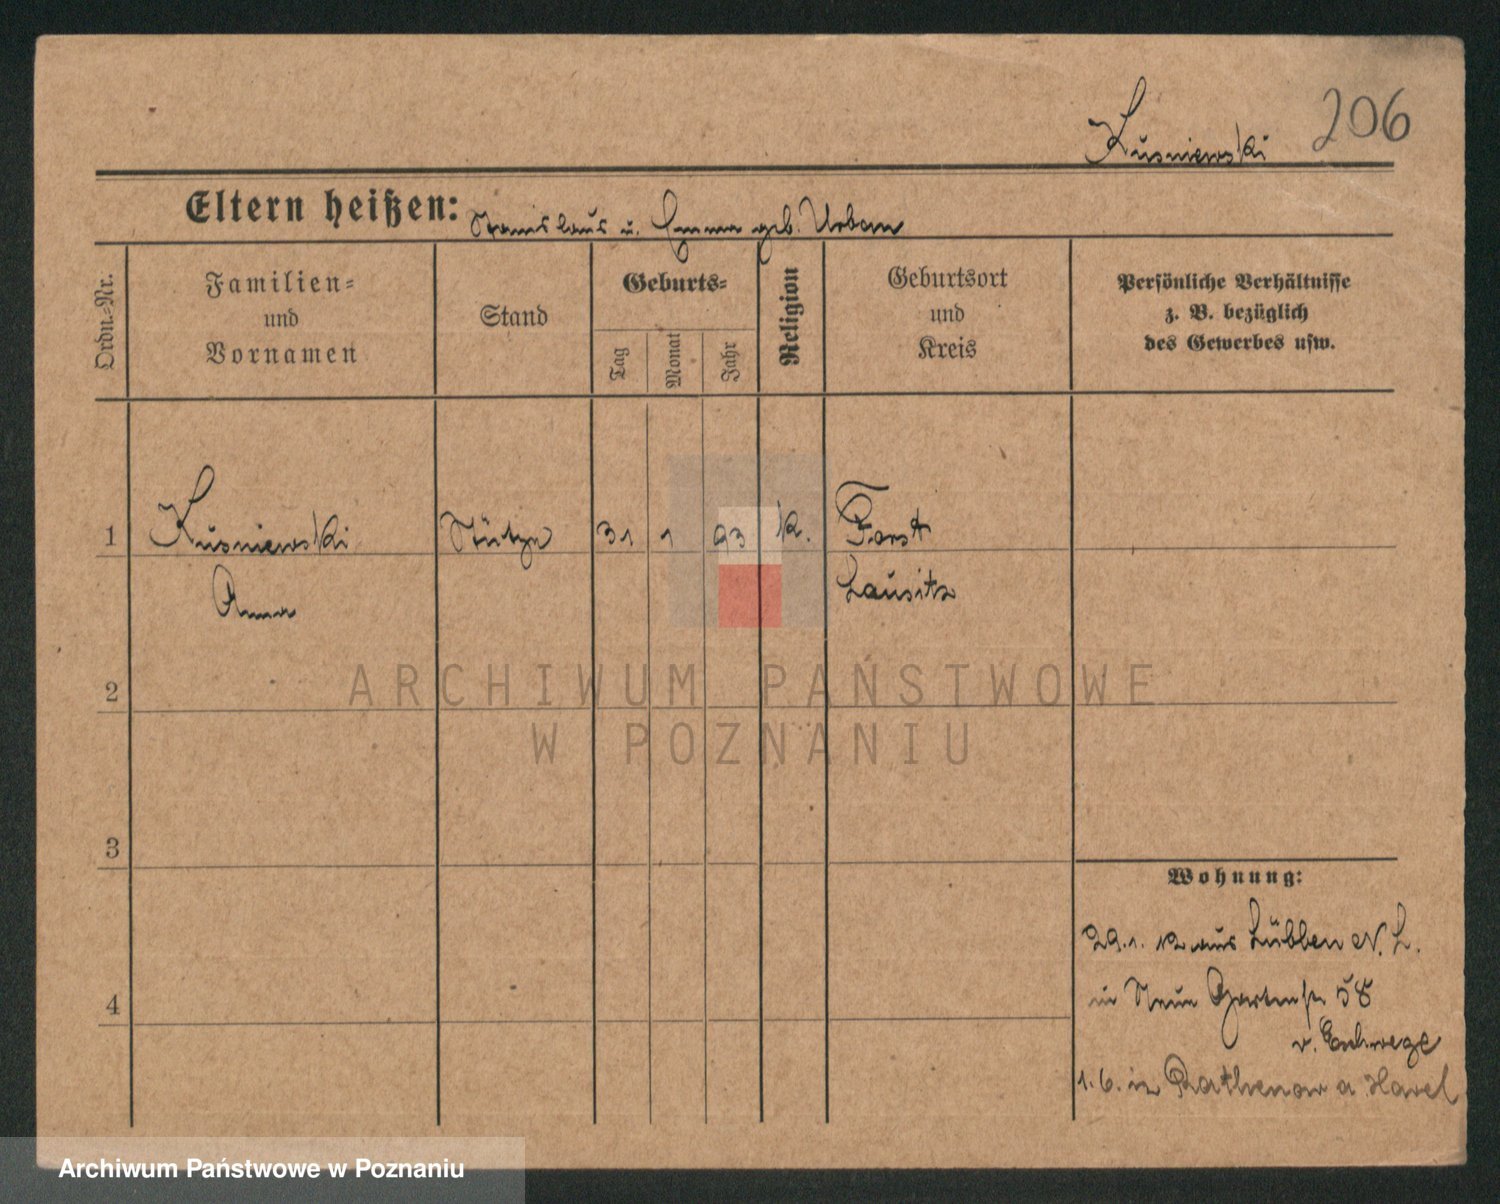 Kusniewski 206
Eltern heißen: Stanislaus u. Emma geb. Urban
Ordn.-Nr.
Familien-
und
Vornamen
Stand
Geburts-
Tag
Monat
Jahr
Religion
Geburtsort
und
Kreis
Persönliche Verhältnisse
z. B. bezüglich
des Gewerbes usw.
1 Kusniewski Stütze 31 1 93 k. Forst
Anna Lausitz
2
3
4
Wohnung:
29.1. 12 aus Lübben N. L.
in Neue Gartenstr 58
v. Eschwege
1.6. in Rathenow a. Havel
ARCHIWUM PAŃSTWOWE
W POZNANIU
Archiwum Państwowe w Poznaniu